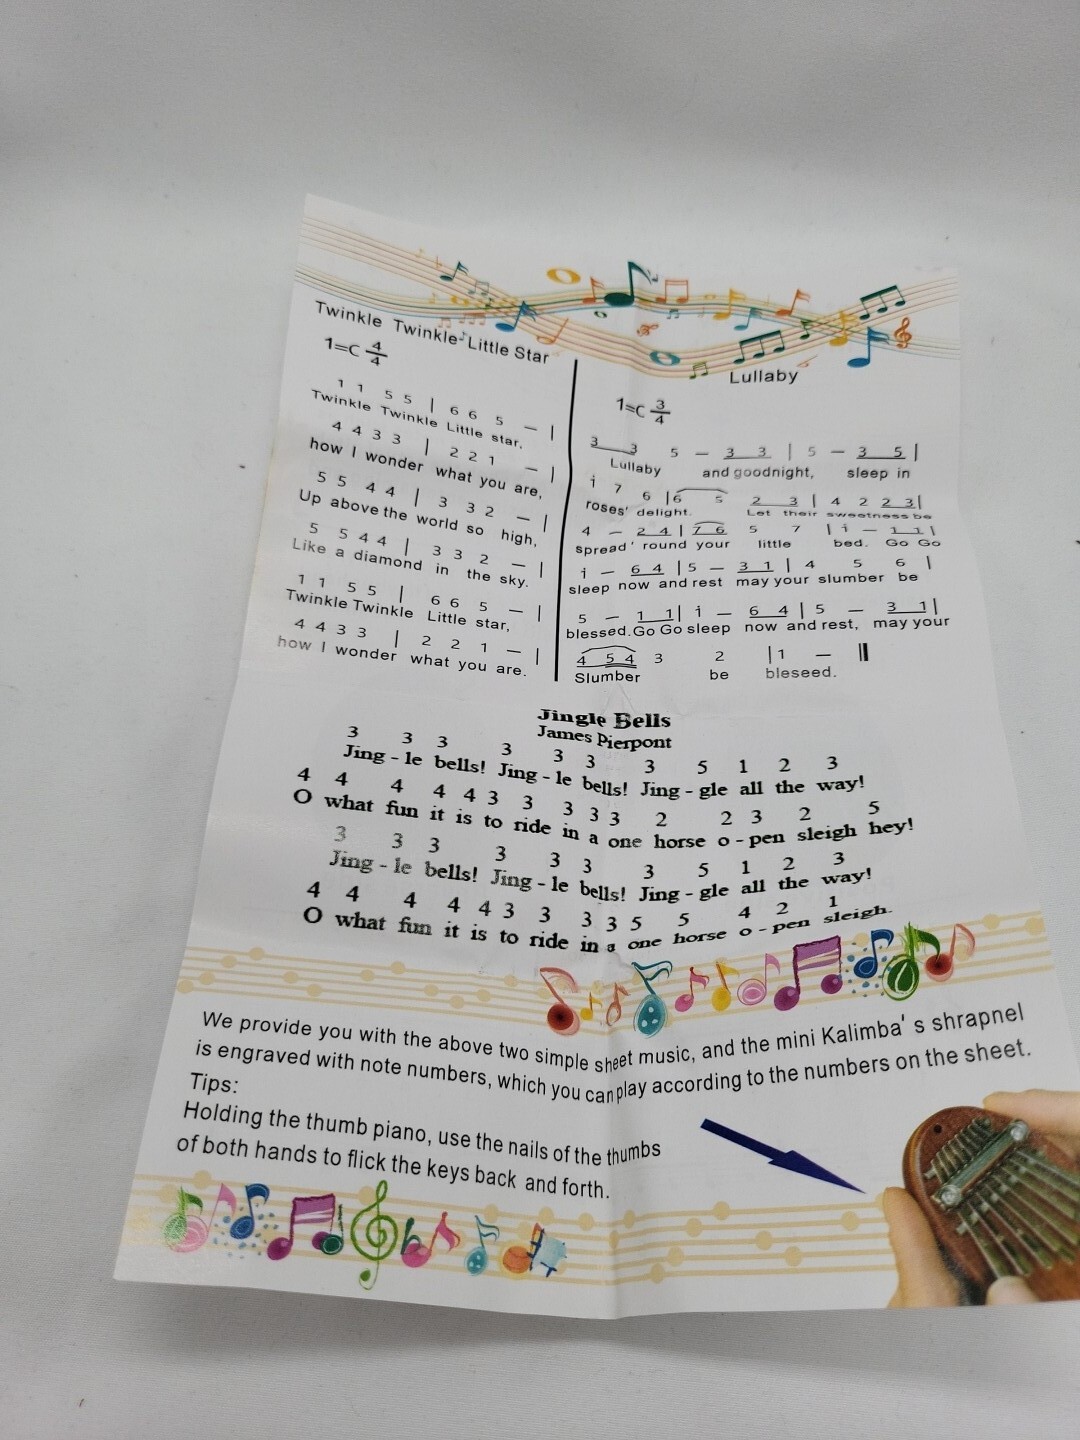 Twinkle Twinkle Little Star
1=C 4/4
1 1 5 5 | 6 6 5 — |
Twinkle Twinkle Little star,
4 4 3 3 | 2 2 1 — |
how I wonder what you are,
5 5 4 4 | 3 3 2 — |
Up above the world so high,
5 5 4 4 | 3 3 2 — |
Like a diamond in the sky.
1 1 5 5 | 6 6 5 — |
Twinkle Twinkle Little star,
4 4 3 3 | 2 2 1 — |
how I wonder what you are.
Lullaby
1=C 3/4
3 3 5 — 3 3 | 5 — 3 5 |
Lullaby and goodnight, sleep in
i 7 6 | 6 5 2 3 | 4 2 2 3 |
roses' delight. Let their sweetness be
4 — 2 4 | 7 6 5 7 | i — 1 1 |
spread' round your little bed. Go Go
i — 6 4 | 5 — 3 1 | 4 5 6 |
sleep now and rest may your slumber be
5 — 1 1 | i — 6 4 | 5 — 3 1 |
blessed. Go Go sleep now and rest, may your
4 5 4 3 2 | 1 — ‖
Slumber be bleseed.
Jingle Bells
James Pierpont
3 3 3 3 3 3 3 5 1 2 3
Jing - le bells! Jing - le bells! Jing - gle all the way!
4 4 4 4 4 3 3 3 3 3 2 2 3 2 5
O what fun it is to ride in a one horse o - pen sleigh hey!
3 3 3 3 3 3 3 5 1 2 3
Jing - le bells! Jing - le bells! Jing - gle all the way!
4 4 4 4 4 3 3 3 3 5 5 4 2 1
O what fun it is to ride in a one horse o - pen sleigh.
We provide you with the above two simple sheet music, and the mini Kalimba's shrapnel
is engraved with note numbers, which you can play according to the numbers on the sheet.
Tips:
Holding the thumb piano, use the nails of the thumbs
of both hands to flick the keys back and forth.